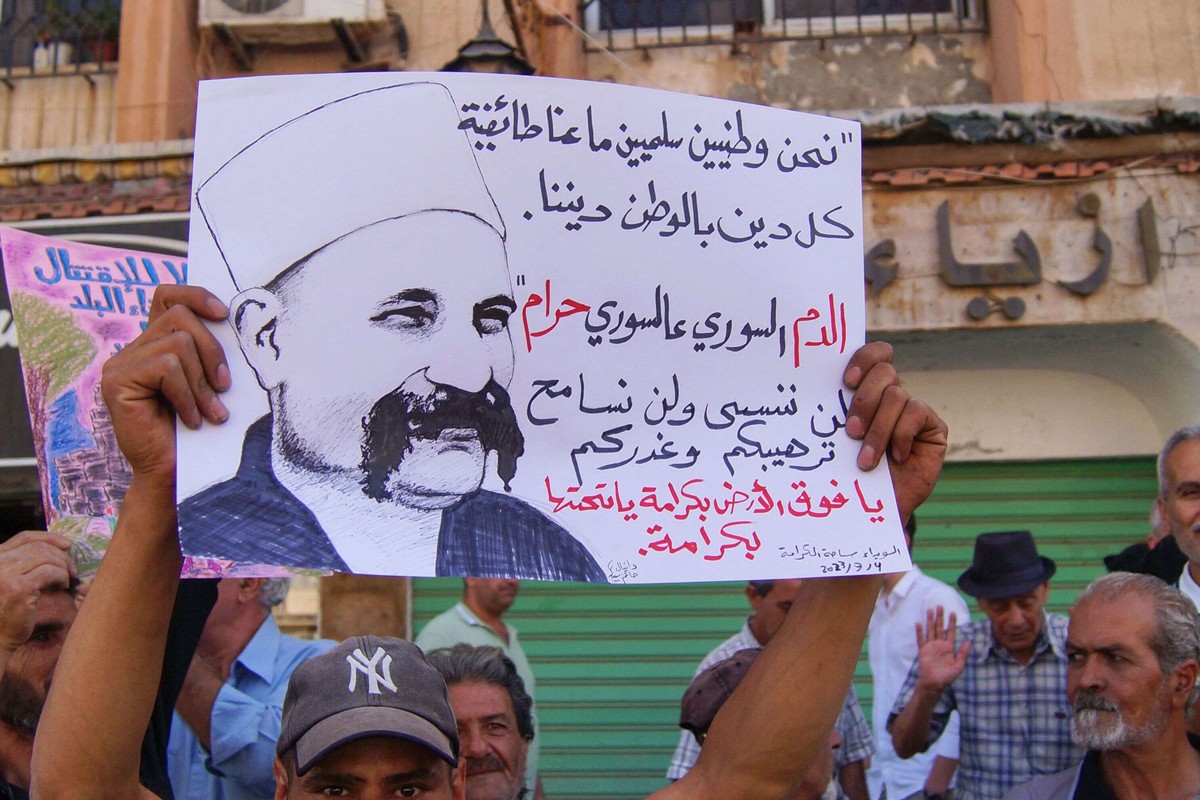 "نحن وطنيين سلميين ما عنا طائفية
كل دين بالوطن ديننا.
الدم السوري عالسوري حرام"
لن ننسى ولن نسامح
ترهيبكم وغدركم
يا فوق الأرض بكرامة يا تحتها
بكرامة.
السويداء ساحة الكرامة
2023/9/4
دانيال
لا للاقتتال
البلد
ازياء
NY